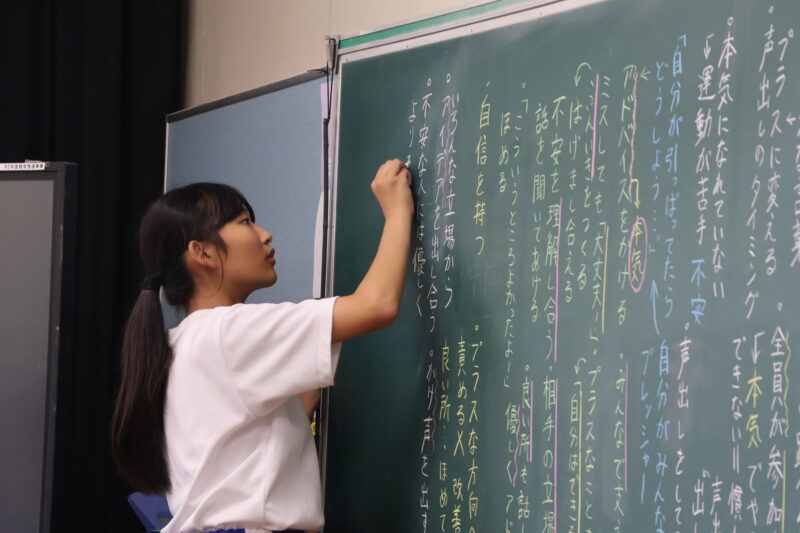 プラスに変える
声出しのタイミング
。本気になれていない
↳運動が苦手
不安
「自分が引っぱってたら
どうしよう…
アドバイスをかける
本気
ミスしても大丈夫!
ふんいきをつくる
はげまし合える
不安を理解し合う
話を聞いてあげる
「こういうところよかったよー!」
ほめる
自信を持つ
。いろんな立場から
アイデアを出し合う
。不安な人には優しく
より
。全員が参加
「本気でや
できない!!慣
声出
声出しをして
「出し
自分がみんな
プレッシャー
。みんなで支え
。プラスなこと
「自分はできる
。相手の立場
。良い所も話
優しくアド
。プラスな方向
責める× 改善
良い所…ほめて
。かけ声を出す